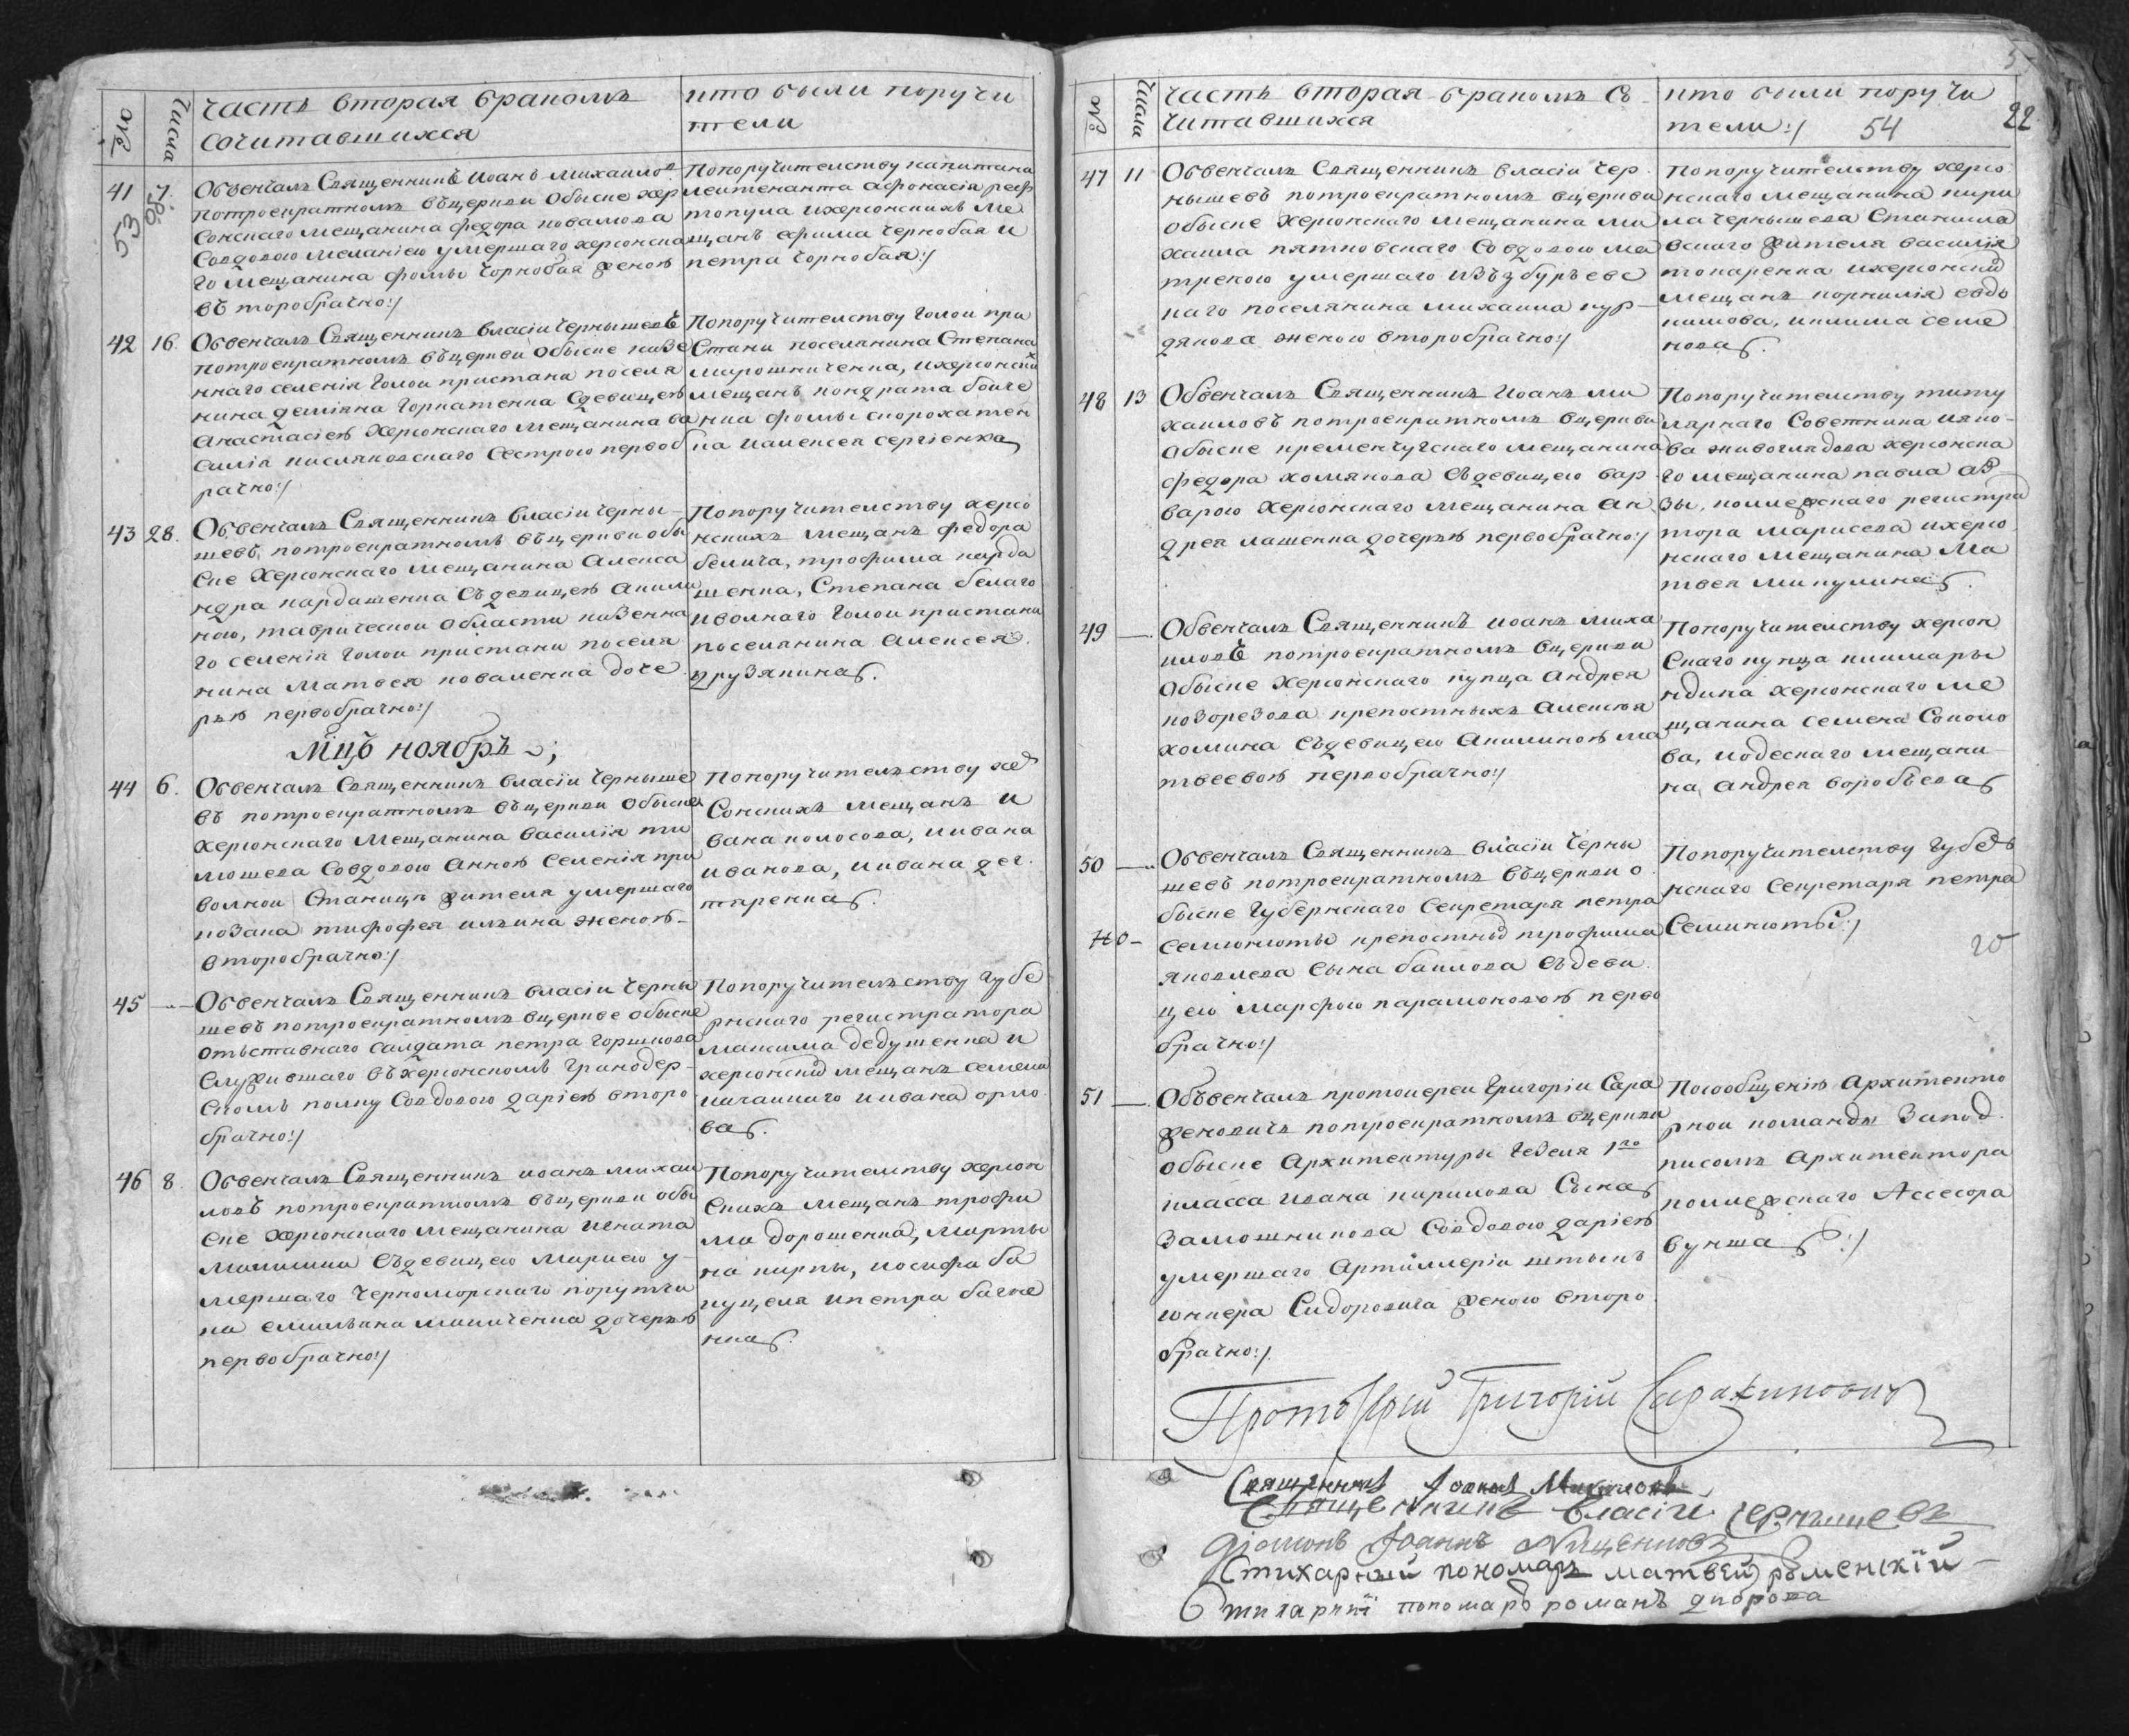 часть вторая бракомъ
сочитавшихся
кто были поручи
тели
числа
41 7.
Обвенчалъ Священникъ Иоанъ Михаилов
потроекратномъ въцеркви обыске хер
сонскаго мещанина федора ковалюва
Совдовою Меланіею умершаго херсонска
го мещанина фомы Чорнобая женоѣ
въторобрачно:/
Попоручителству капитана
леитенанта афонасія
и херсонскихъ ме
щанъ ефима Чернобая и
петра Чорнобая:/
53
42 16.
Обвенчалъ Священникъ власіи чернышевъ
потроекратномъ въцеркви обыске казе
ннаго селенія Голои пристани поселя
нина деміяна Горкатенка Сдевицеѣ
Анастасіеѣ Херсонскаго мещанина ва
силія кисляковскаго Сестрою первоб
рачно:/
Попоручителству Голои при
Стани поселянина Степана
мирошниченка, ихерсонски
мещанъ кондрата бойче
нка фомы скорохатен
ка иалексея сергіенка
43 28.
Обвенчалъ Священникъ власіи черны
шевъ, потроекратномъ въцеркви обы
ске Херсонскаго мещанина Алекса
ндра кардашенка Съдевицеѣ Акили
ною, таврическои области казенна
го селенія Голои пристани поселя
нина Матвея коваленка доче
рѣю первобрачно:/
Попоручителству херсо
нскихъ мещанъ федора
белича, трофима карда
шенка, Степана белаго
иволнаго Голои пристани
поселянина Алексея
друзякина.
Мцъ ноябрь
44 6.
Обвенчалъ Священникъ власіи Черныше
въ потроекратномъ въцеркви обыске
херсонскаго мещанина василія ти
мошева Совдовою Анноѣ Селенія при
волнои Станицы жителя умершаго
козака тифофея илина женоѣ
второбрачно:/
Попоручителъству хер
Сонскихъ мещанъ и
вана колосова, иивана
иванова, иивана дег
тяренка.
45
Обвенчалъ Священникъ власіи Черны
шевъ потроекратномъ вцеркве обыске
отъставнаго салдата петра Горшкова
Служившаго въхерсонскомъ Гранодер
скомъ полку Совдовою даріеѣ второ
брачно:/
Попоручителъству Губе
рнскаго регистратора
максима дедушенка и
херсонски мещанъ семена
иивана орло
ва.
46 8.
Обвенчалъ Священникъ иоанъ михаи
ловъ потроекратномъ въцеркви обы
ске Херсонскаго мещанина игната
Съдевицею Мариею у
мершаго Черноморскаго порутчи
ка емилъяна дочерѣю
первобрачно:/
Попоручителству херсон
скихъ мещанъ трофи
ма дорошенка, марты
на кирпы, иосифа ба
иПетра багне
нка.
числа
часть вторая бракомъ Со
читавшихся
кто были поручи
тели:/ 54
22
47 11
Обвенчалъ Священникъ власіи Чер
нышевъ потроекратномъ вцеркви
обыске Херсонскаго Мещанина ми
хаила пятковскаго Совдовою ма
треною умершаго
наго поселянина михаила кур
дякова женою второбрачно:/
Попоручителству херсо
нскаго мещанина кири
ла чернышева Станисла
вскаго жителя василія
токаренка ихерсонски
мещанъ корнилія евдо
кимова, иклима семе
нова.
48 13
Обвенчалъ Священникъ Иоанъ ми
хаиловъ потроекратномъ вцеркви
обыске кременчугскаго мещанина
федора хомякова Съдевицею вар
варою Херсонскаго мещанина ан
дрея лашенка дочерѣю первобрачно:/
Попоручителству титу
лярнаго Советника иако
ва живоглядова херсонска
го мещанина павла
зы, коллежскаго регистра
тора марисева ихерсо
нскаго мещанина ма
твея микулина.
49
Обвенчалъ Священникъ иоанъ миха
иловъ потроекратномъ вцеркви
обыске Херсонскаго купца андрея
козорезова крепостныхъ алексѣя
хомина съдевицею Акилиноѣ ма
твеевоѣ первобрачно:/
Попоручителству херсон
Скаго купца
ндина херсонскаго ме
щанина семена Соколо
ва, иодескаго мещани
на андрея воробъева
50
Обвенчалъ Священникъ власіи Черны
шевъ потроекратномъ въцеркви о
быске Губернскаго Секретаря петра
семиконоты крепостнои трофима
яковлева Сына баилова Съдеви
цею Марфою парамоновоѣ перво
брачно:/
Попоручителству Губер
нскаго Секретаря петра
51
Обвенчалъ протоиереи Григоріи Сара
финовичъ потроекратномъ вцеркви
обыске Архитектуры Гезеля 1го
класса ивана кирилова Сына
Замошникова Совдовою даріеѣ
умершаго Артиллеріи штыкъ
юнкера Сидоровича женою второ
брачно:/
Посообщенію Архитекто
рнои команды Запод
писомъ архитектора
коллежскаго Ассесора
вунша:/
Протоіерей Григорій Сарафиновичъ
Священникъ Іоаннъ Михаиловъ
Священникъ Власіи Чернышевъ
Діаконъ Іоаннъ
Стихарный пономарь матвей роменскій
Стихарній пономарь романъ диброва